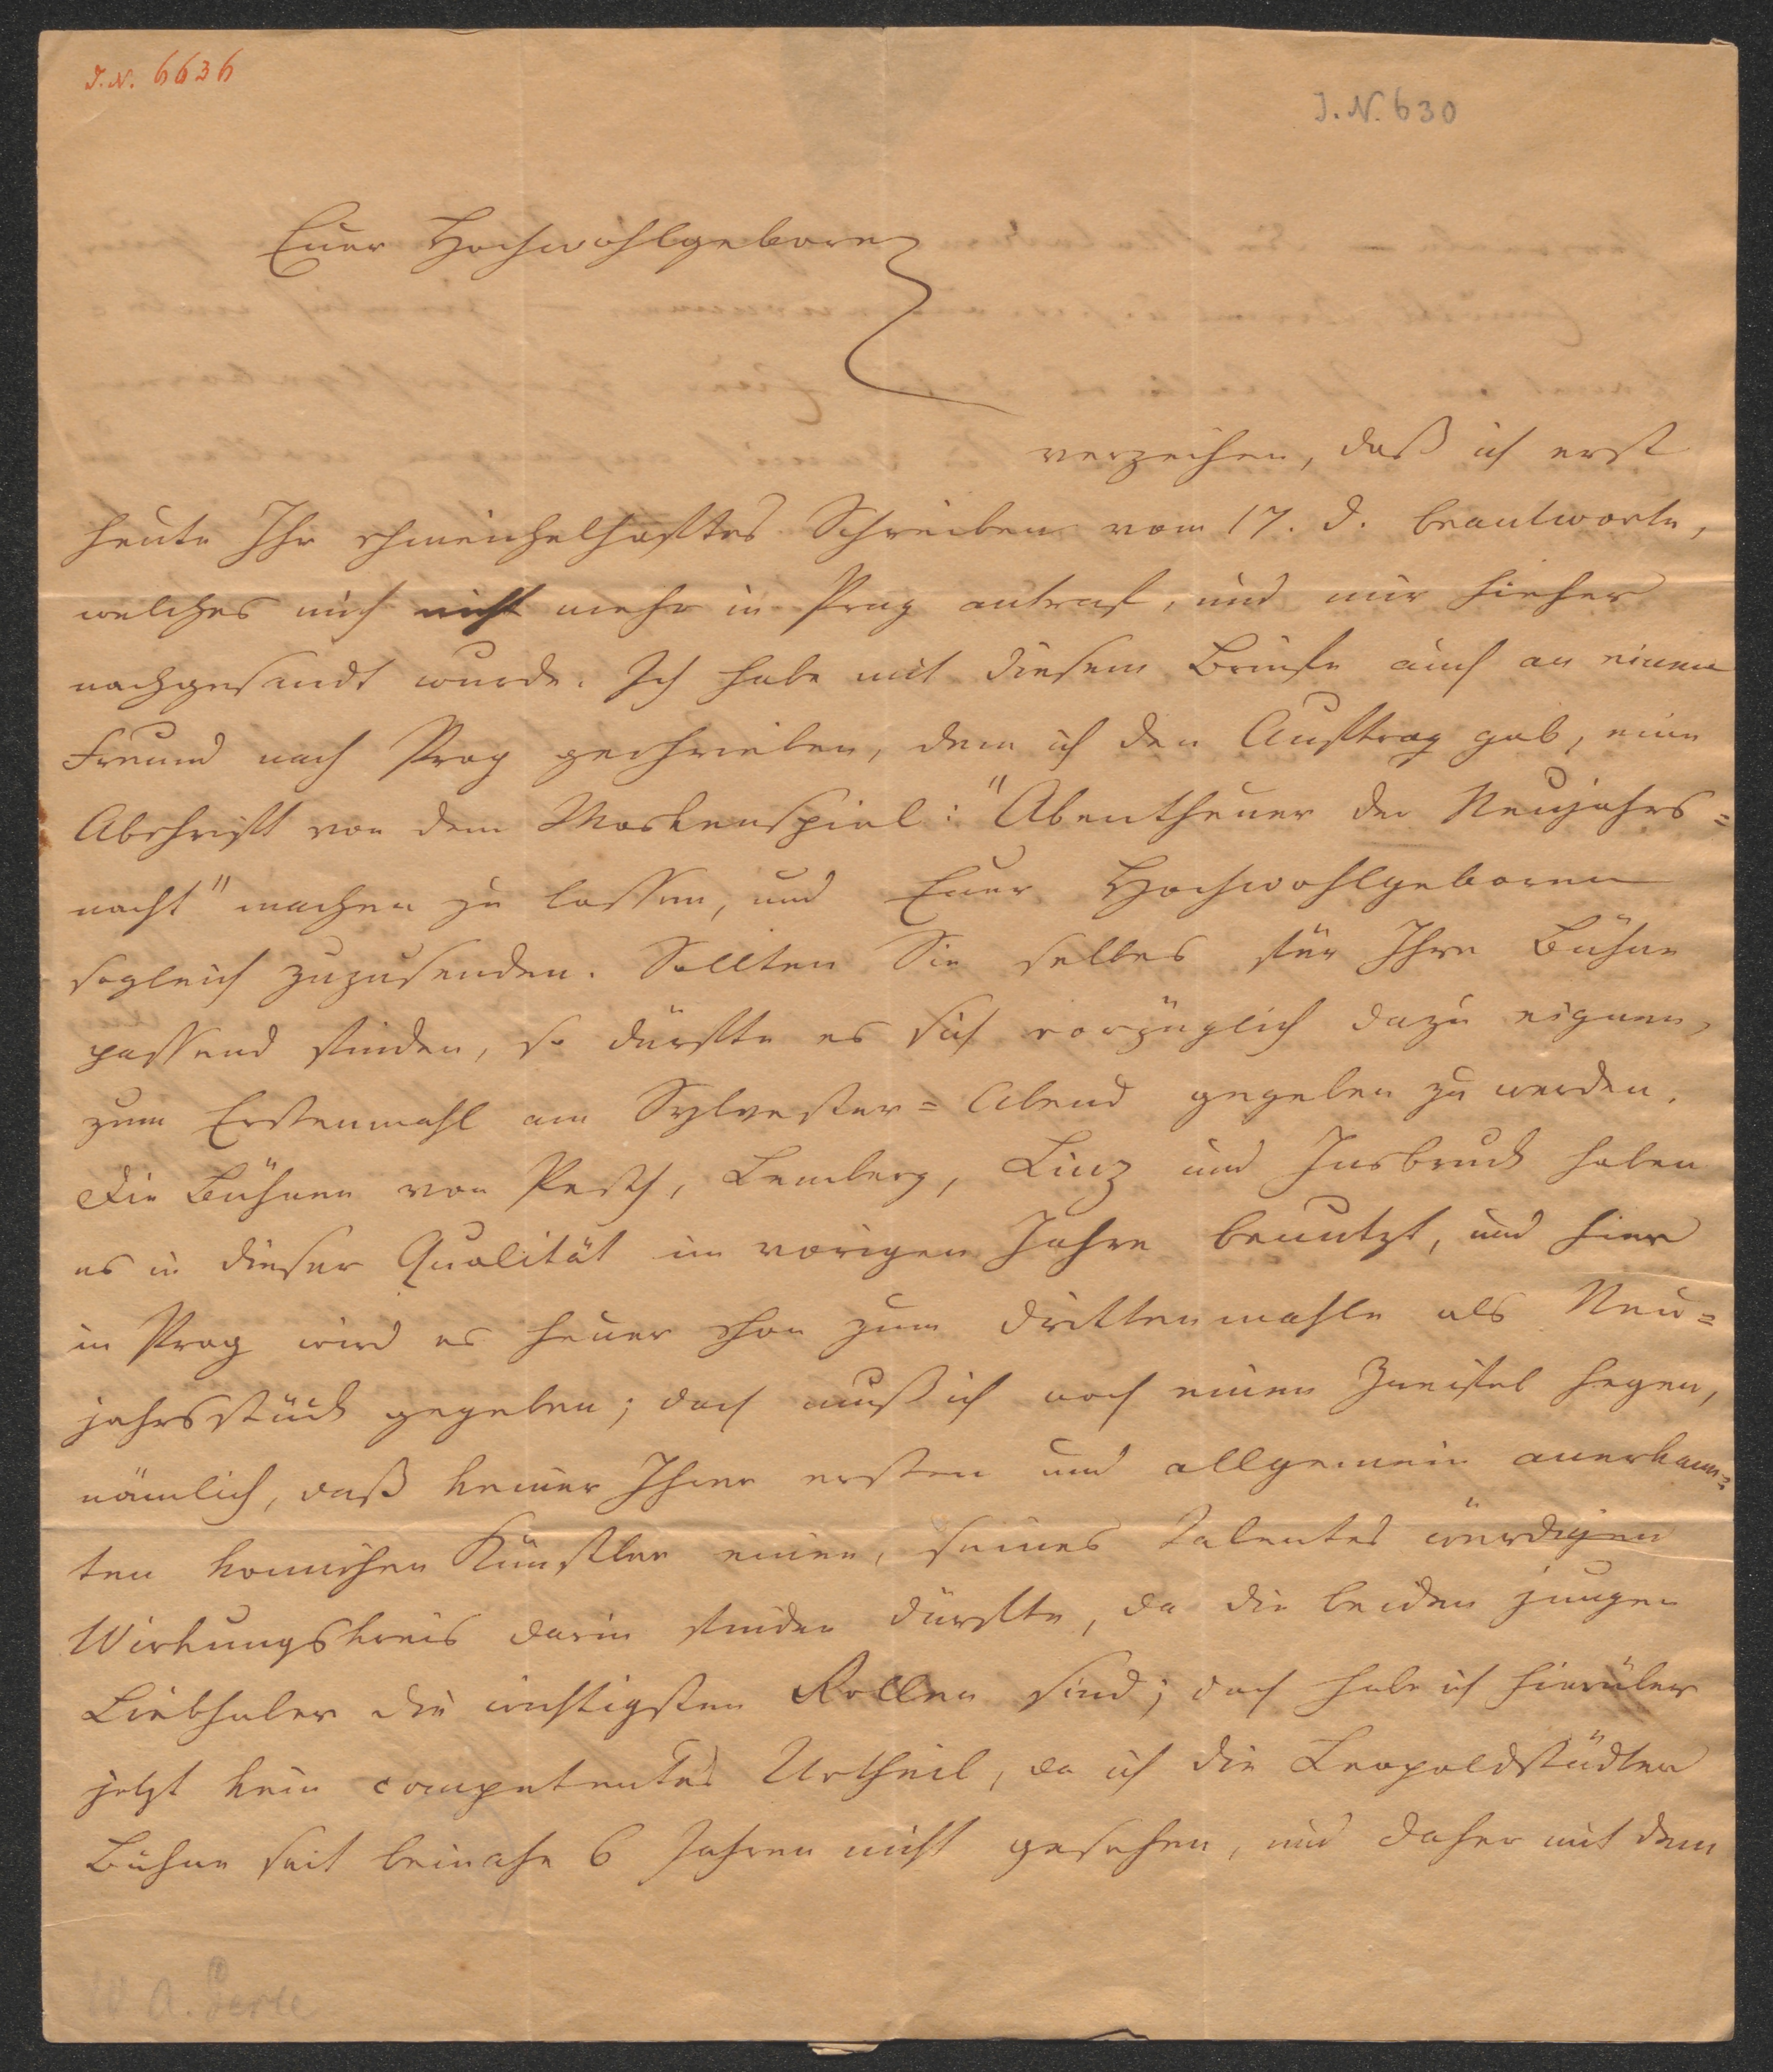 I.N. 6636
I.N. 630
Euer Hochwohlgeboren
verzeihen, daß ich erst
heute Ihr schmeichelhaftes Schreiben vom 17. d. beantworte,
welches mich nicht mehr in Prag antraf, und mir hieher
nachgesandt wurde. Ich habe mit diesem Briefe auch an einen
Freund nach Prag geschrieben, dem ich den Auftrag gab, eine
Abschrift von dem Maskenspiel: "Abentheuer der Neujahrs=
nacht" machen zu lassen, und Euer Hochwohlgeboren
sogleich zuzusenden. Sollten Sie selbes für Ihre Bühne
passend finden, so dürfte es sich vorzüglich dazu eignen,
zum Erstenmahl am Sylvester=Abend gegeben zu werden.
Die Bühnen von Pesth, Lemberg, Linz und Insbruck haben
es in dieser Qualität im vorigen Jahre benutzt, und hier
in Prag wird es heuer schon zum drittenmahle als Neu=
jahrsstück gegeben; doch muß ich noch einen Zweifel hegen,
nämlich, daß keiner Ihrer ersten und allgemein anerkann=
ten komischen Künstler einen, seines Talentes würdigen
Wirkungskreis darin finden dürfte, da die beiden jungen
Liebhaber die wichtigsten Rollen sind; doch habe ich hierüber
jetzt kein competentes Urtheil, da ich die Leopoldstädter
Bühne seit beinahe 6 Jahren nicht gesehen, und daher mit dem
W. A. Gerle